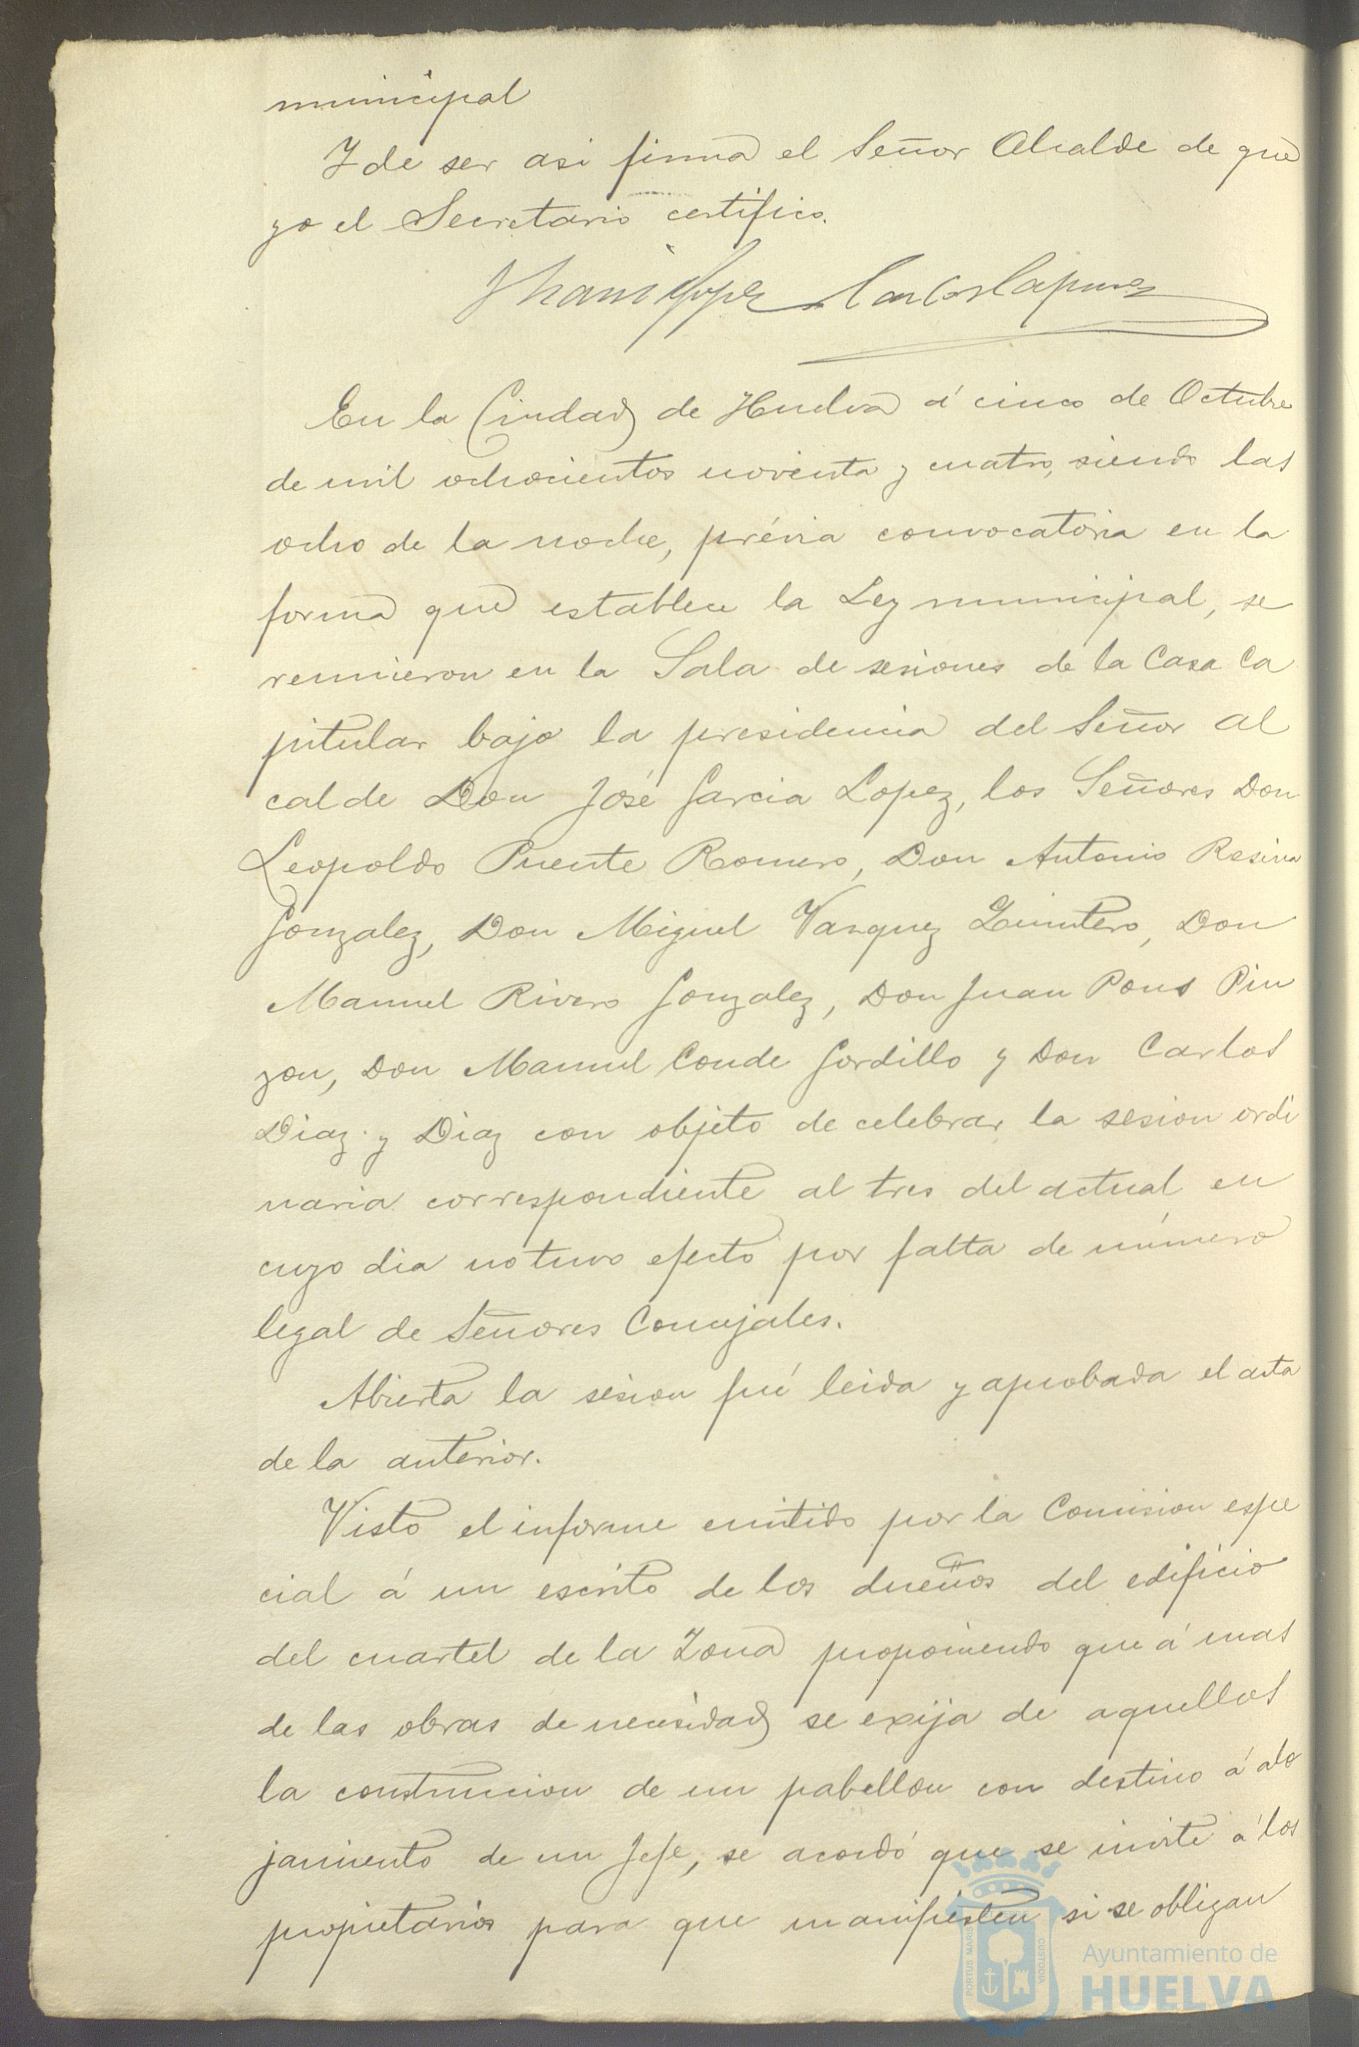 municipal
Y de ser asi firma el Señor Alcalde de que
yo el Secretario certifico.
En la Ciudad de Huelva á cinco de Octubre
de mil ochocientos noventa y cuatro, siendo las
ocho de la noche, prévia convocatoria en la
forma que establece la Ley municipal, se
reunieron en la Sala de sesiones de la Casa Ca
pitular bajo la presidencia del Señor Al
calde Don José Garcia Lopez, los Señores Don
Leopoldo Puente Romero, Don Antonio Resina
Gonzalez, Don Miguel Vazquez Quintero, Don
Manuel Rivero Gonzalez, Don Juan Pons Pin
zon, Don Manuel Conde Gordillo y Don Carlos
Diaz y Diaz con objeto de celebrar la sesion ordi
naria correspondiente al tres del actual en
cuyo dia no tuvo efecto por falta de número
legal de Señores Concejales.
Abierta la sesion fué leida y aprobada el acta
de la anterior.
Visto el informe emitido por la Comision espe
cial á un escrito de los dueños del edificio
del cuartel de la Zona proponiendo que á mas
de las obras de necesidad se exija de aquellos
la construccion de un pabellon con destino á alo
jamiento de un Jefe, se acordó que se invite á los
propietarios para que manifiesten si se obligan
PORTUS MARIS
CUSTODIA
Ayuntamiento de
HUELVA